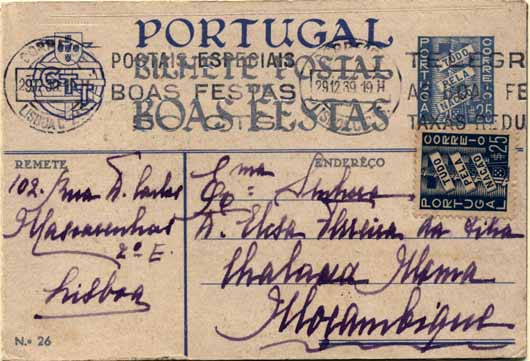 PORTUGAL
BILHETE POSTAL
BOAS FESTAS
CORREIO
CTT
LISBOA C
POSTAIS ESPECIAIS
BOAS FESTAS
29.12.39.19 H
TELEGR
BOAS FE
TAXAS REDU
PORTUGAL
CORREIO
TUDO
PELA
NAÇÃO
25
CORREIO
25
TUDO
PELA
NAÇÃO
PORTUGAL
REMETE
102. Rua D. Carlos
Mascarenhas
2º E.
Lisboa
ENDERÊÇO
Exma Senhora
D. Elisa Ferreira da Silva
Moma
Moçambique
N.º 26